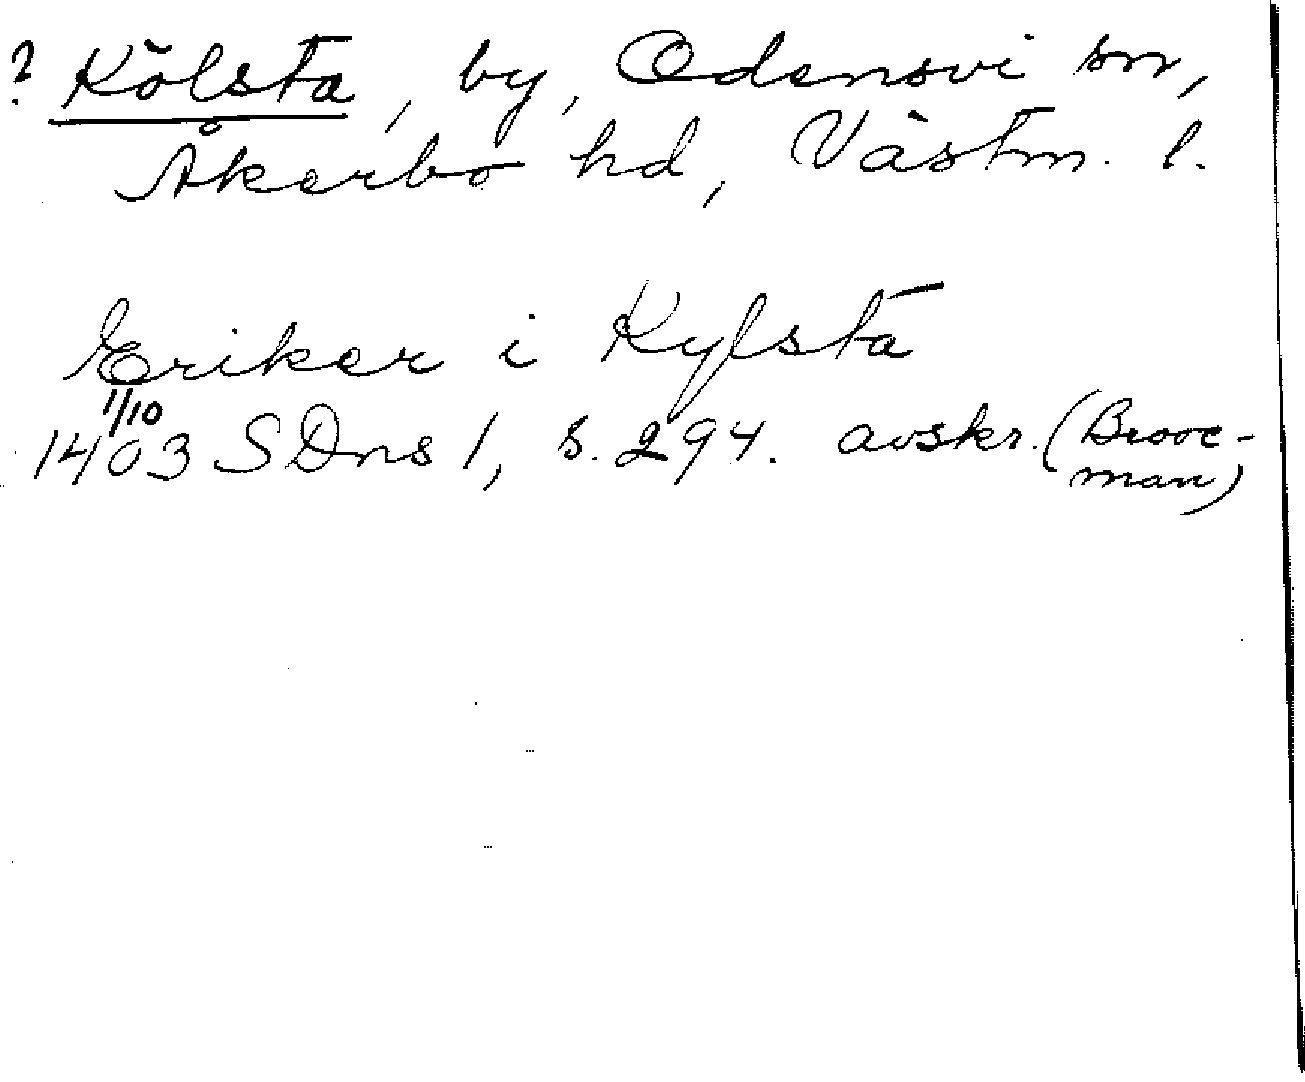 ? Kölsta, by, Odensvi sn,
Åkerbo hd, Västm. l.
Eriker i Kylsta
1/10
1403 SDns 1, s. 294. avskr. (Brooc-
man)